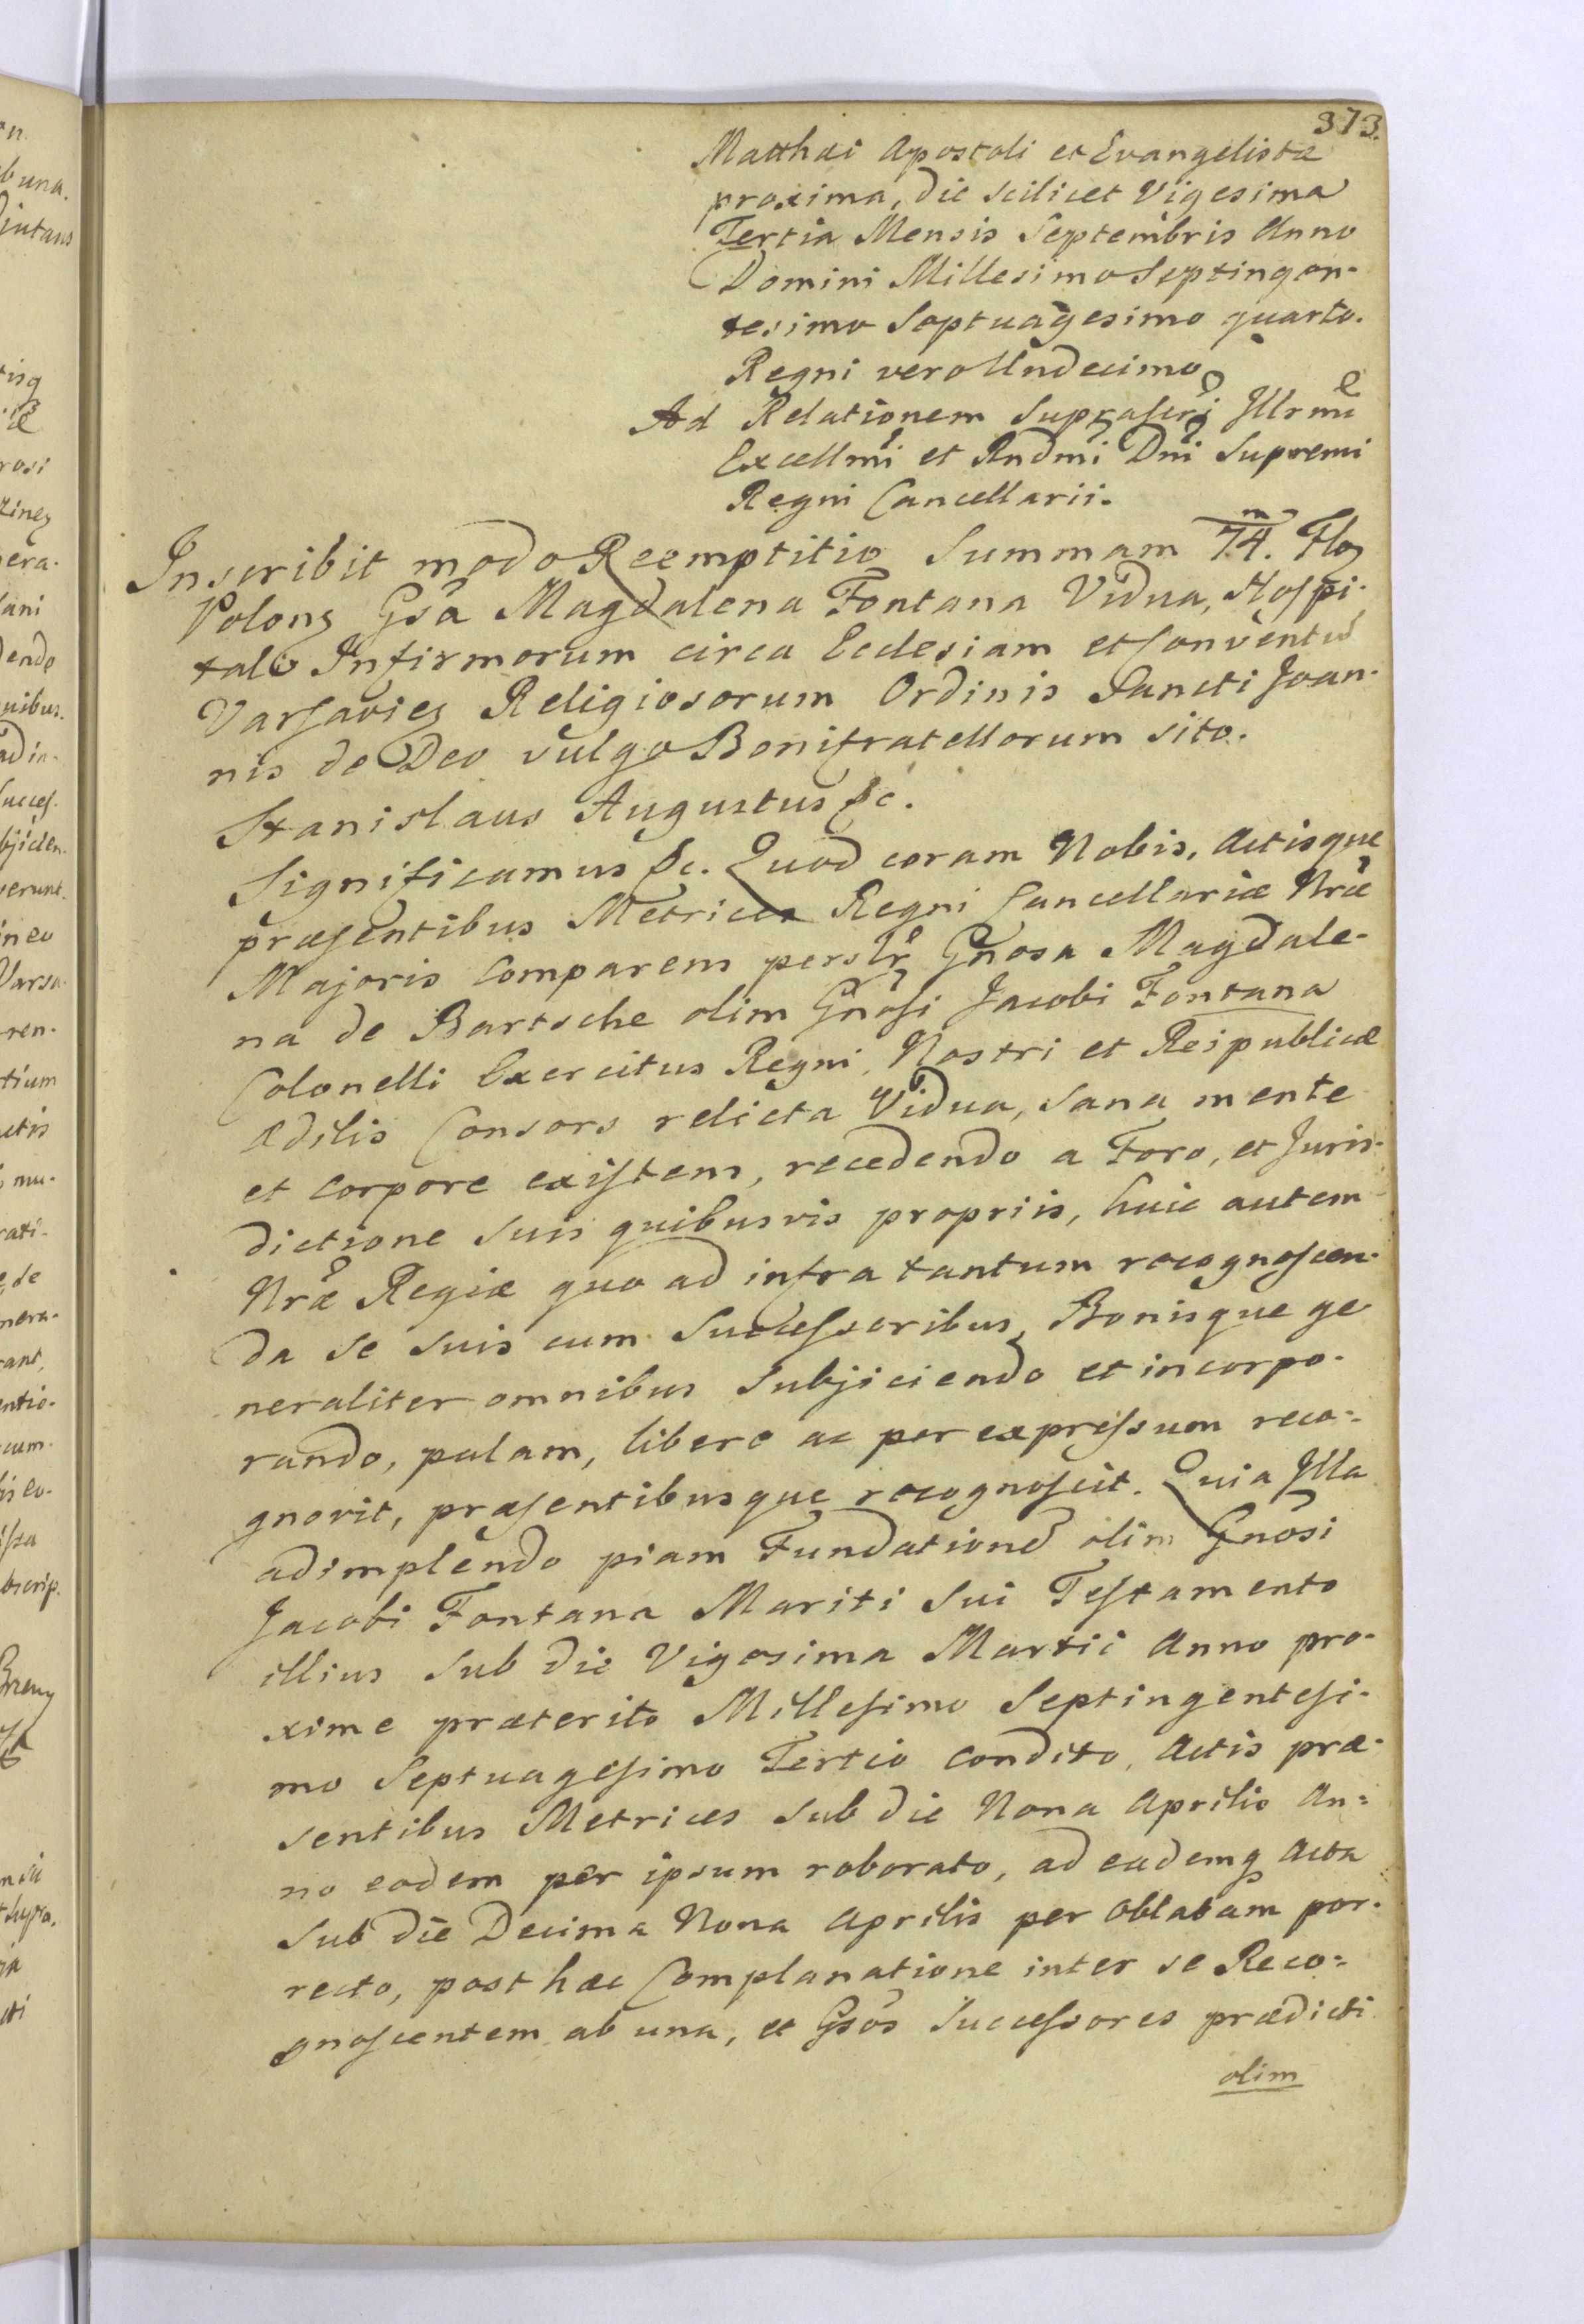 373.
Matthæi Apostoli et Evangelistæ
proxima, die scilicet Vigesima
Tertia Mensis Septembris Anno
Domini Millesimo Septingen-
tesimo Septuagesimo quarto.
Regni vero Undecimo
Ad Relationem Suprascri Illrmi
Excellmi et Rndmi Dni Supremi
Regni Cancellarii.
Inscribit modo Reemptitio Summam 74. Flo
Polon Gsa Magdalena Fontana Vidua, Hospi-
tale Infirmorum circa Ecclesiam et Conventus
Varsavien Religiosorum Ordinis Sancti Joan-
nis de Deo vulgo Bonifratellorum sito.
Stanislaus Augustus &c.
Significamus &c. Quod coram Nobis, Actisque
præsentibus Metrices Regni Cancellariæ Nræ
Majoris Comparens perslr Gnosa Magdale-
na de Bartsche olim Gnosi Jacobi Fontana
Colonelli Exercitus Regni, Nostri et Reipublicæ
ædilis Consors relicta Vidua, sana mente
et Corpore existens, recedendo a Foro, et Juris-
dictione suis quibusvis propriis, huic autem
Nræ Regiæ quo ad infra tantum recognoscen-
da se suis cum Successoribus, Bonisque ge
neraliter omnibus Subjiciendo et incorpo-
rando, palam, libere ac per expressum reco-
gnovit, præsentibusque recognoscit. Quia Illa
adimplendo piam Fundationẽ olim Gnosi
Jacobi Fontana Mariti Sui Testamento
illius Sub die Vigesima Martii Anno pro-
xime præterito Millesimo Septingentesi-
mo Septuagesimo Tertio Condito, Actis præ-
sentibus Metrices Sub die Nona Aprilis An-
no eodem per ipsum roborato, ad eademq Acta
Sub die Decima Nona Aprilis per Oblatam por-
recto, post hæc Complanatione inter se Reco-
gnoscentem ab una, et Gsos Successores prædicti
olim